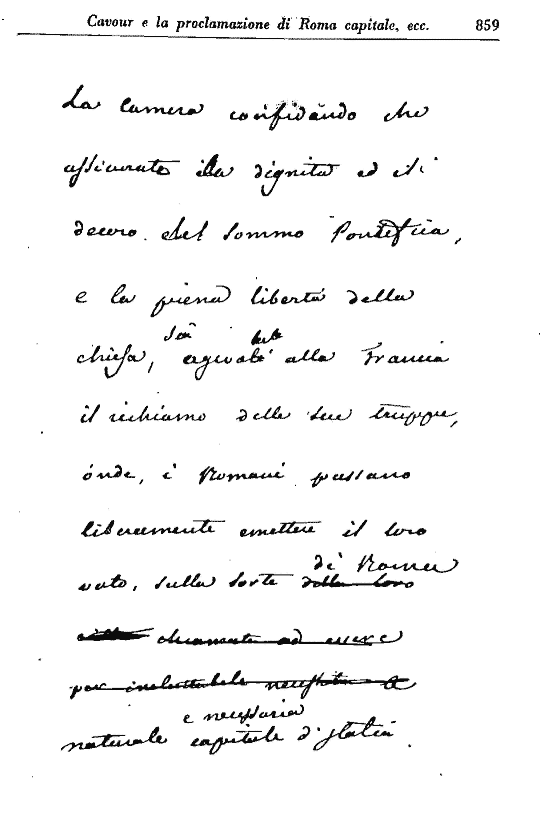 Cavour e la proclamazione di Roma capitale, ecc. 859
La Camera confidando che
assicurata la dignità ed il
decoro del Sommo Pontefice,
e la piena libertà della
sarà
chiesa, agevole alla Francia
il richiamo delle sue truppe,
onde, i Romani possano
liberamente emettere il loro
di Roma
voto, sulla sorte della loro
chiamata ad essere
per ineluttabile necessità
e necessaria
naturale capitale d'Italia